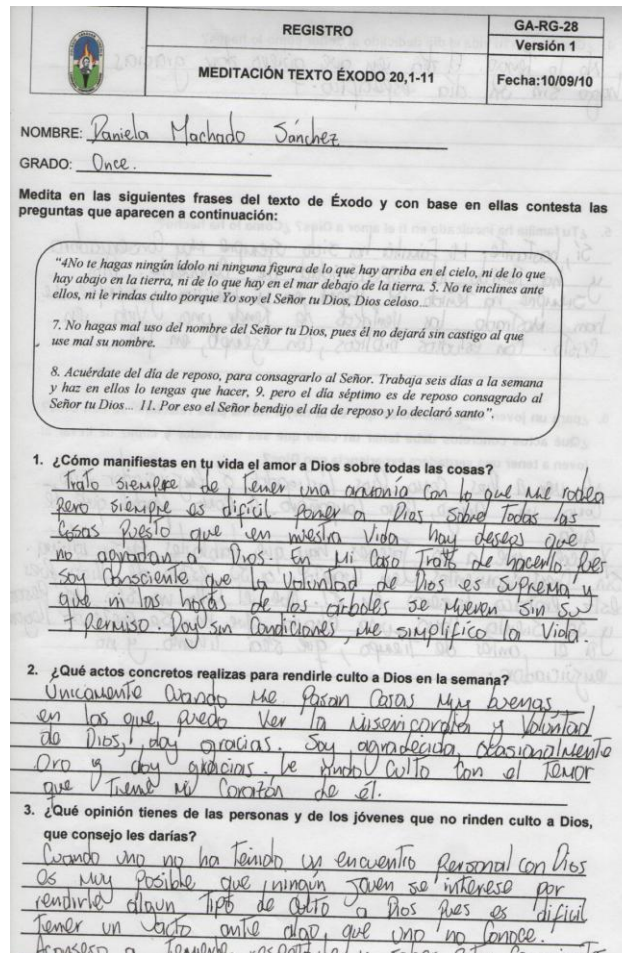 REGISTRO
GA-RG-28
Versión 1
MEDITACIÓN TEXTO ÉXODO 20,1-11
Fecha:10/09/10
NOMBRE: Daniela Machado Sánchez
GRADO: Once.
Medita en las siguientes frases del texto de Éxodo y con base en ellas contesta las
preguntas que aparecen a continuación:
"4No te hagas ningún ídolo ni ninguna figura de lo que hay arriba en el cielo, ni de lo que
hay abajo en la tierra, ni de lo que hay en el mar debajo de la tierra. 5. No te inclines ante
ellos, ni le rindas culto porque Yo soy el Señor tu Dios, Dios celoso...
7. No hagas mal uso del nombre del Señor tu Dios, pues él no dejará sin castigo al que
use mal su nombre.
8. Acuérdate del día de reposo, para consagrarlo al Señor. Trabaja seis días a la semana
y haz en ellos lo que tengas que hacer, 9. pero el día séptimo es de reposo consagrado al
Señor tu Dios... 11. Por eso el Señor bendijo el día de reposo y lo declaró santo",
1. ¿Cómo manifiestas en tu vida el amor a Dios sobre todas las cosas?
Trato siempre de, tener una armonía con lo que me rodea
Pero siempre es difícil poner a Dios, sobre Todas las
Cosas Puesto que en nuestra Vida hay deseos que
no agradan a Dios. En mi Caso Trato de hacerlo Pues
Soy Consciente que la Voluntad de Dios es Suprema y
que ni las hojas de los árboles se Mueven Sin Su
Permiso Doy sin Condiciones, me simplifico la Vida.
2. ¿Qué actos concretos realizas para rendirle culto a Dios en la semana?
Unicamente Cuando Me Pasan Cosas Muy buenas,
en las que, puedo Ver la Misericordia y Voluntad
de Dios, doy gracias. Soy agradecida, Ocasionalmente
Oro y doy gracias. Le rindo Culto Con el Temor
que Tiene Mi Corazón de él.
3. ¿Qué opinión tienes de las personas y de los jóvenes que no rinden culto a Dios,
que consejo les darías?
Cuando uno no ha Tenido un encuentro Personal con Dios
es Muy Posible que ningún Joven se interese por
rendirle algun Tipo de Culto a Dios pues es difícil
Tener un Tacto ante algo, que uno no Conoce.